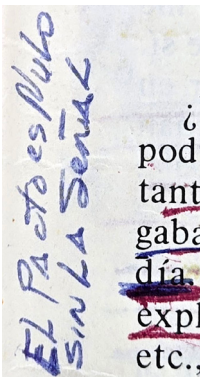 EL PACTO es NULO
SIN LA SEÑAL
¿
pod
tant
gaba
día.
expl
etc.,